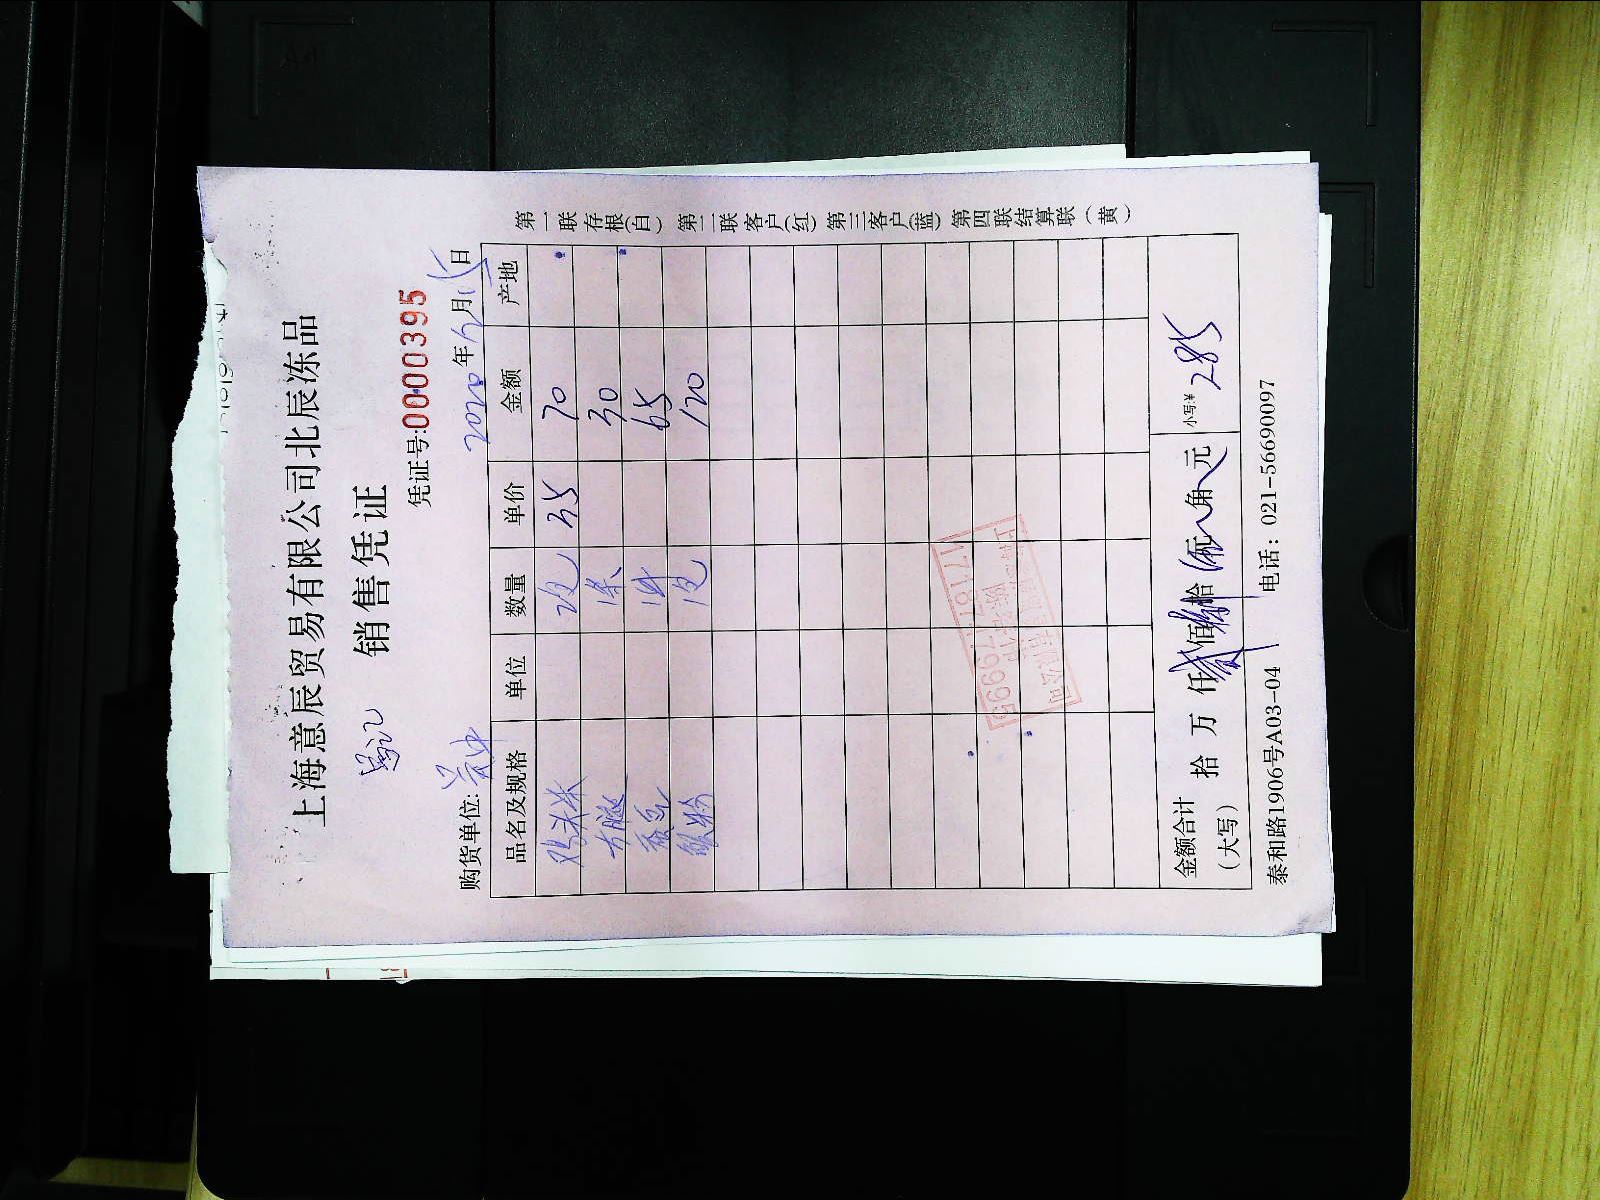 上海意辰贸易有限公司北辰冻品
销售凭证
凭证号:0000395
购货单位: 2020年5月15日
品名及规格 单位 数量 单价 金额 产地
鸡米 2包 35 70
方腿 1条 30
1件 65
1包 120
金额合计(大写) 拾 万 仟 佰 拾 元 角 元 小写:¥ 285
泰和路1906号A03-04 电话：021-56690097
第一联存根(白) 第二联客户(红) 第三客户(蓝) 第四联结算联(黄)